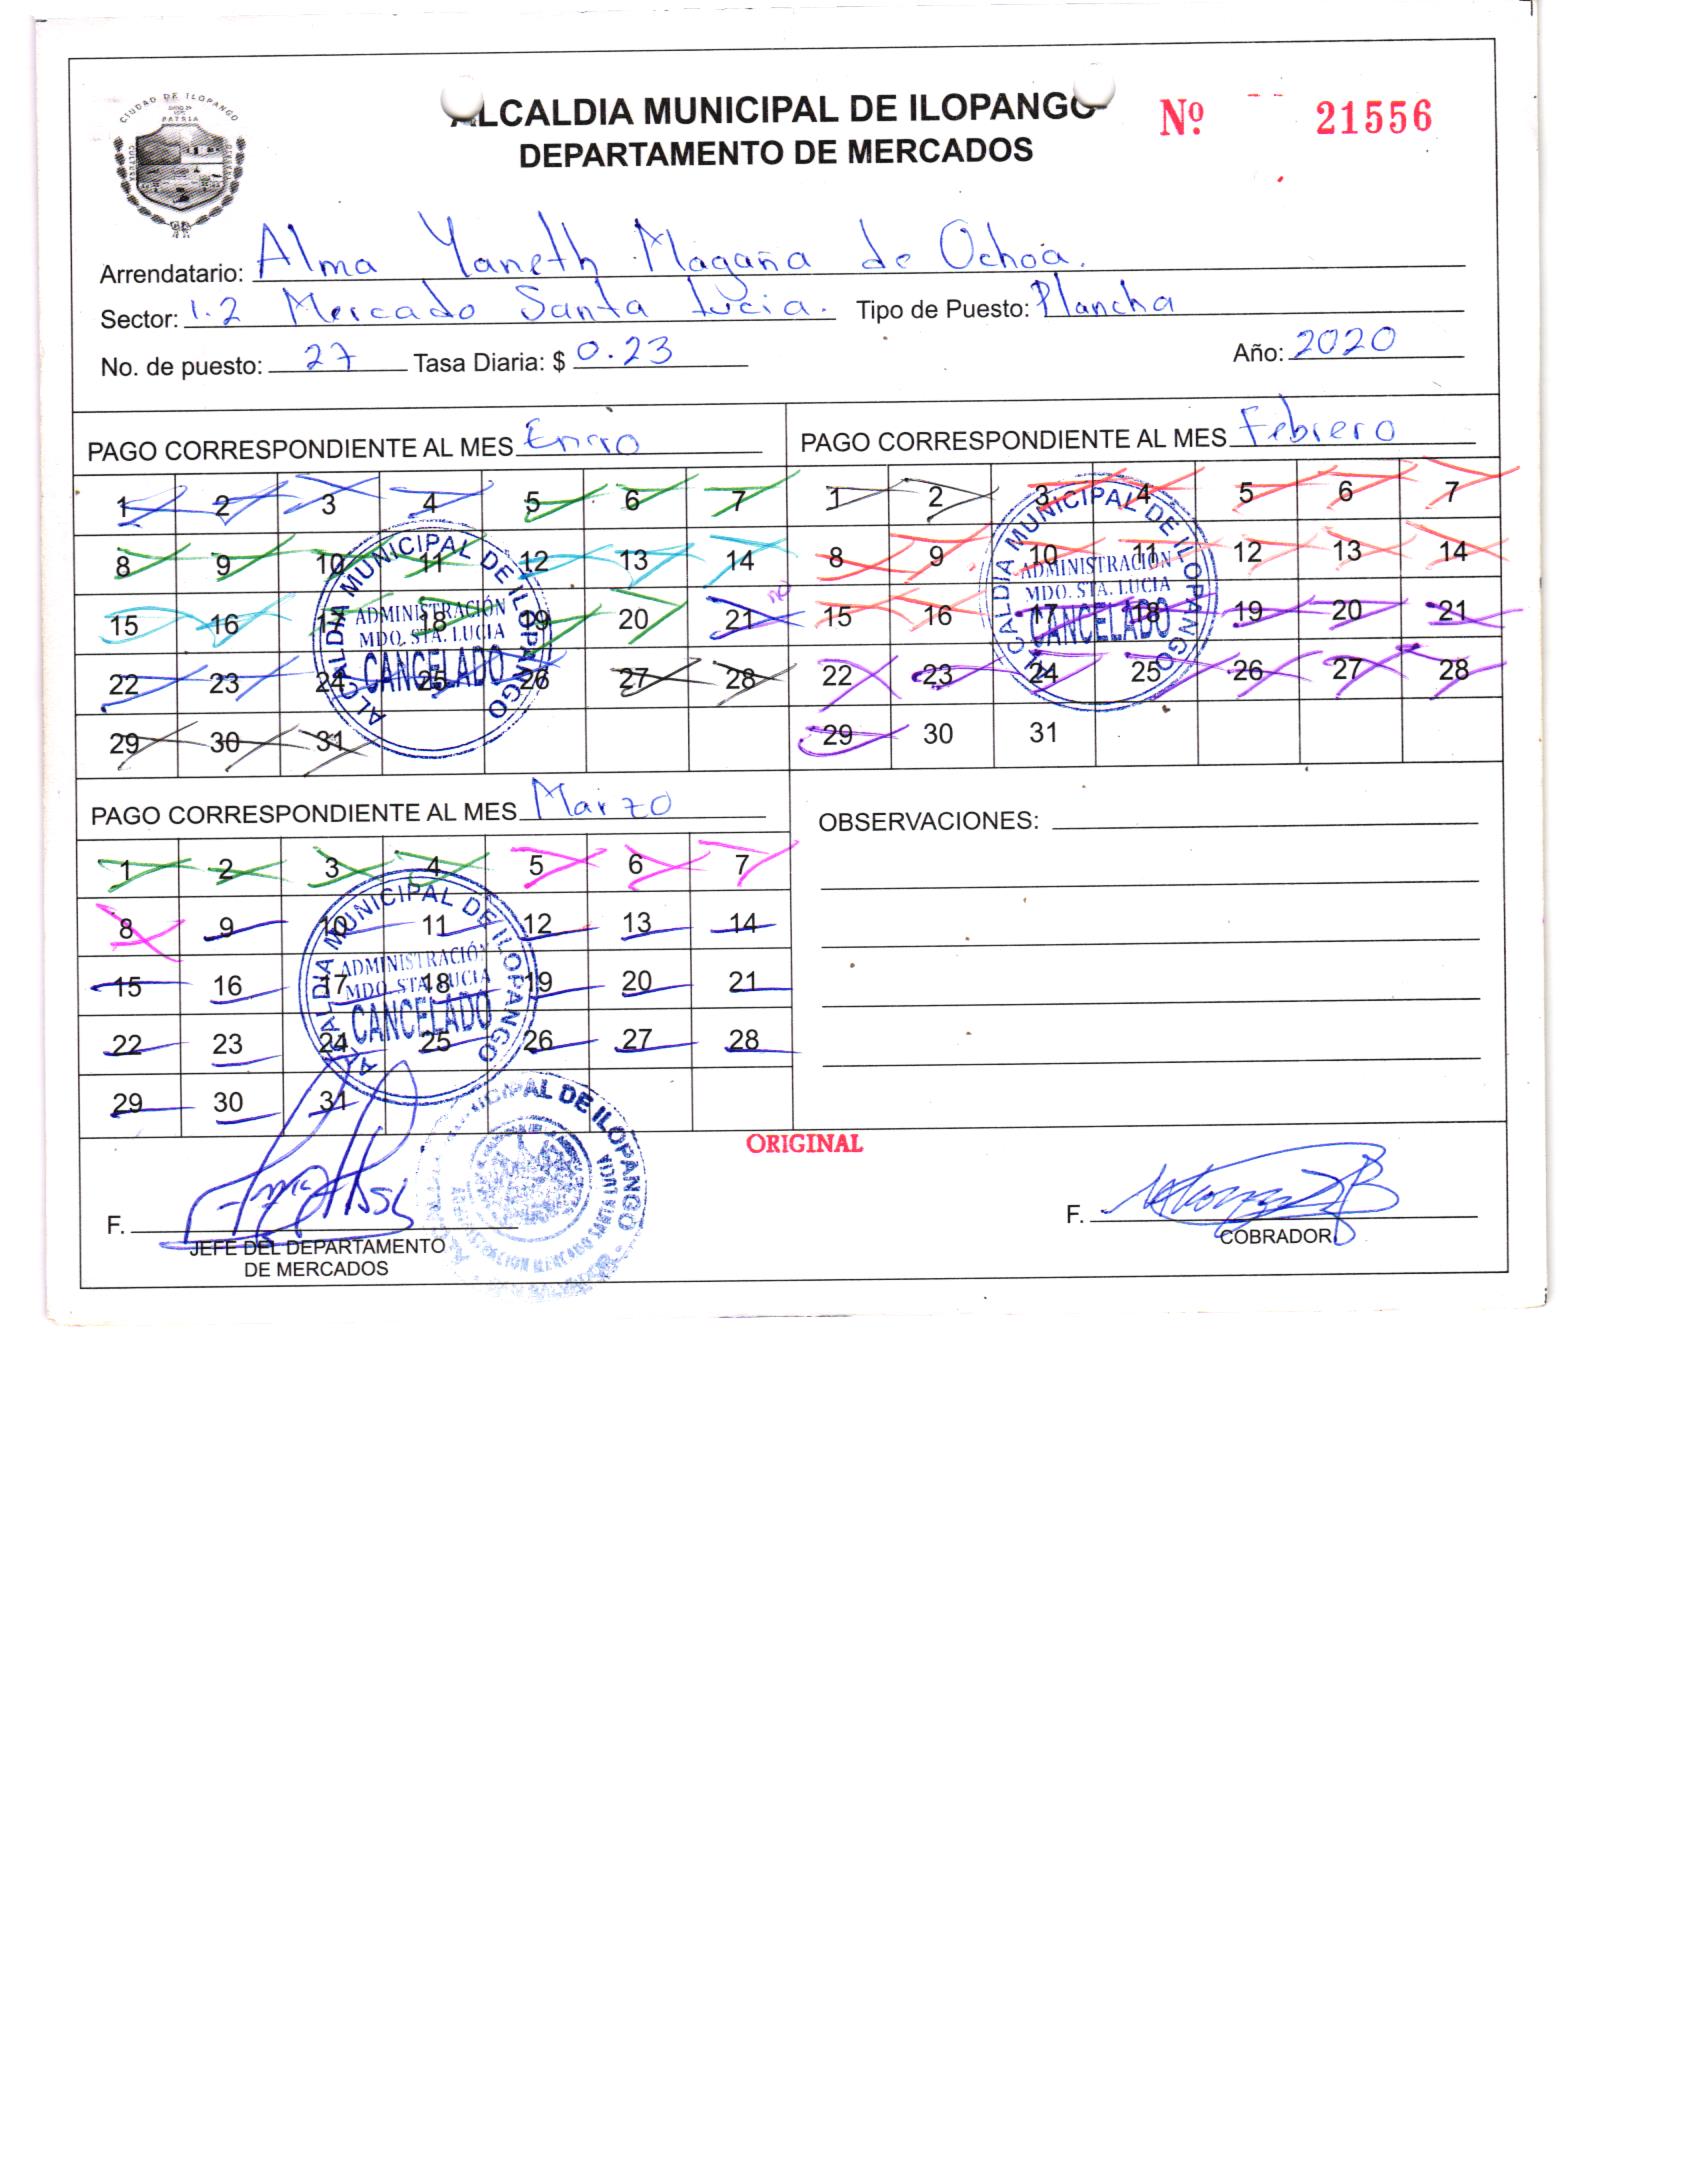 CIUDAD DE ILOPANGO
PATRIA
ALCALDIA MUNICIPAL DE ILOPANGO
DEPARTAMENTO DE MERCADOS
Nº 21556
Arrendatario: Alma Yaneth Magaña de Ochoa.
Sector: 1.2 Mercado Santa Lucia. Tipo de Puesto: Plancha
No. de puesto: 27 Tasa Diaria: $ 0.23 Año: 2020
PAGO CORRESPONDIENTE AL MES Enero
1 2 3 4 5 6 7
8 9 10 11 12 13 14
15 16 17 18 19 20 21
22 23 24 25 26 27 28
29 30 31
ALCALDIA MUNICIPAL DE ILOPANGO
ADMINISTRACIÓN
MDO. STA. LUCIA
CANCELADO
PAGO CORRESPONDIENTE AL MES Febrero
1 2 3 4 5 6 7
8 9 10 11 12 13 14
15 16 17 18 19 20 21
22 23 24 25 26 27 28
29 30 31
ALCALDIA MUNICIPAL DE ILOPANGO
ADMINISTRACIÓN
MDO. STA. LUCIA
CANCELADO
PAGO CORRESPONDIENTE AL MES Marzo
1 2 3 4 5 6 7
8 9 10 11 12 13 14
15 16 17 18 19 20 21
22 23 24 25 26 27 28
29 30 31
ALCALDIA MUNICIPAL DE ILOPANGO
ADMINISTRACIÓN
MDO. STA. LUCIA
CANCELADO
OBSERVACIONES:
ORIGINAL
F.
JEFE DEL DEPARTAMENTO
DE MERCADOS
DE ILOPANGO
MERCADO SANTA LUCIA
F.
COBRADOR